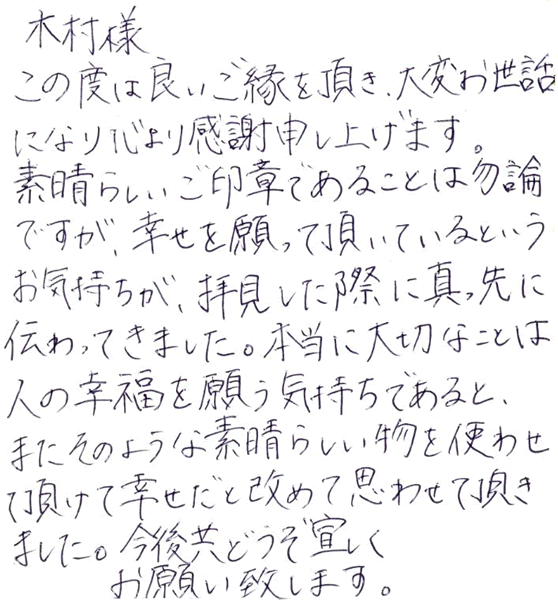 木村様
この度は良いご縁を頂き、大変お世話
になり心より感謝申し上げます。
素晴らしいご印章であることは勿論
ですが、幸せを願って頂いているという
お気持ちが、拝見した際に真っ先に
伝わってきました。本当に大切なことは
人の幸福を願う気持ちであると、
またそのような素晴らしい物を使わせ
て頂けて幸せだと改めて思わせて頂き
ました。今後共どうぞ宜しく
お願い致します。